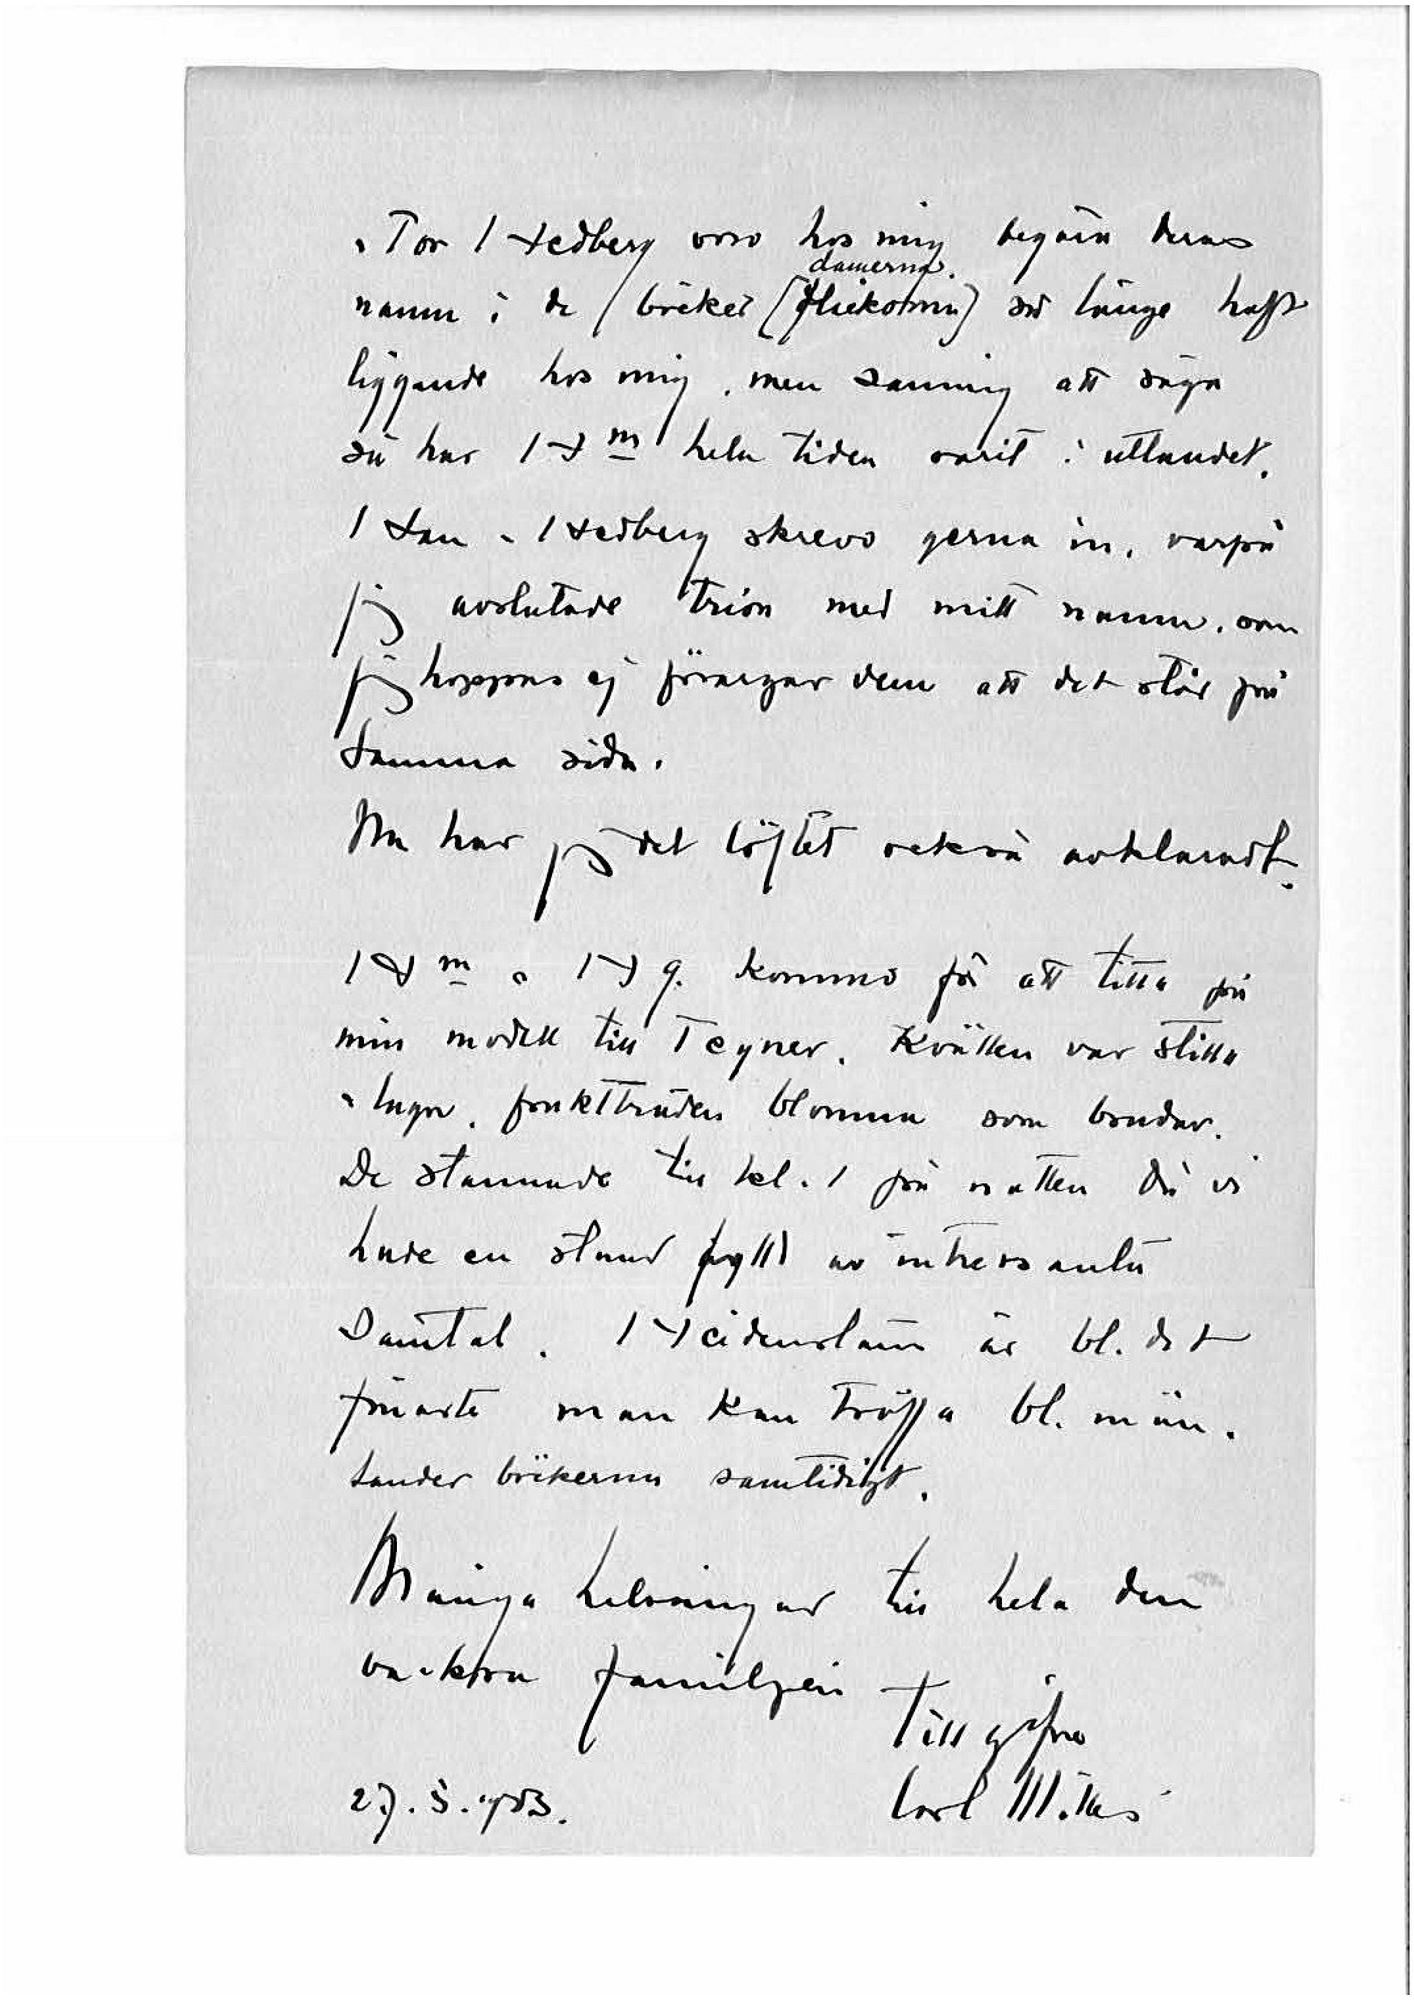 o Tor Hedberg voro hos mig begära deras
damerna.
namn i de böcker (flickorna) så länge haft
liggande hos mig, men sanning att säga
så har H-m hela tiden varit i utlandet.
Han o Hedberg skrevo gerna in, varpå
jag avslutade trion med mitt namn, som
jag hoppas ej förargar dem att det står på
samma sida.
Nu har jag det löftet också avklaradt.
H-m o H-g. kommo för att titta på
min modell till Tegner. Kvällen var stilla
o lugn, fruktträden blomma som brudar.
De stannade till kl. 1 på natten då vi
hade en stund fylld av intressanta
Samtal. Heidenstam är bl. det
finaste man kan träffa bl. män.
Sänder böckerna samtidigt.
Många helsningar till hela den
vackra familjen
Tillgifne
27.5. Carl Milles